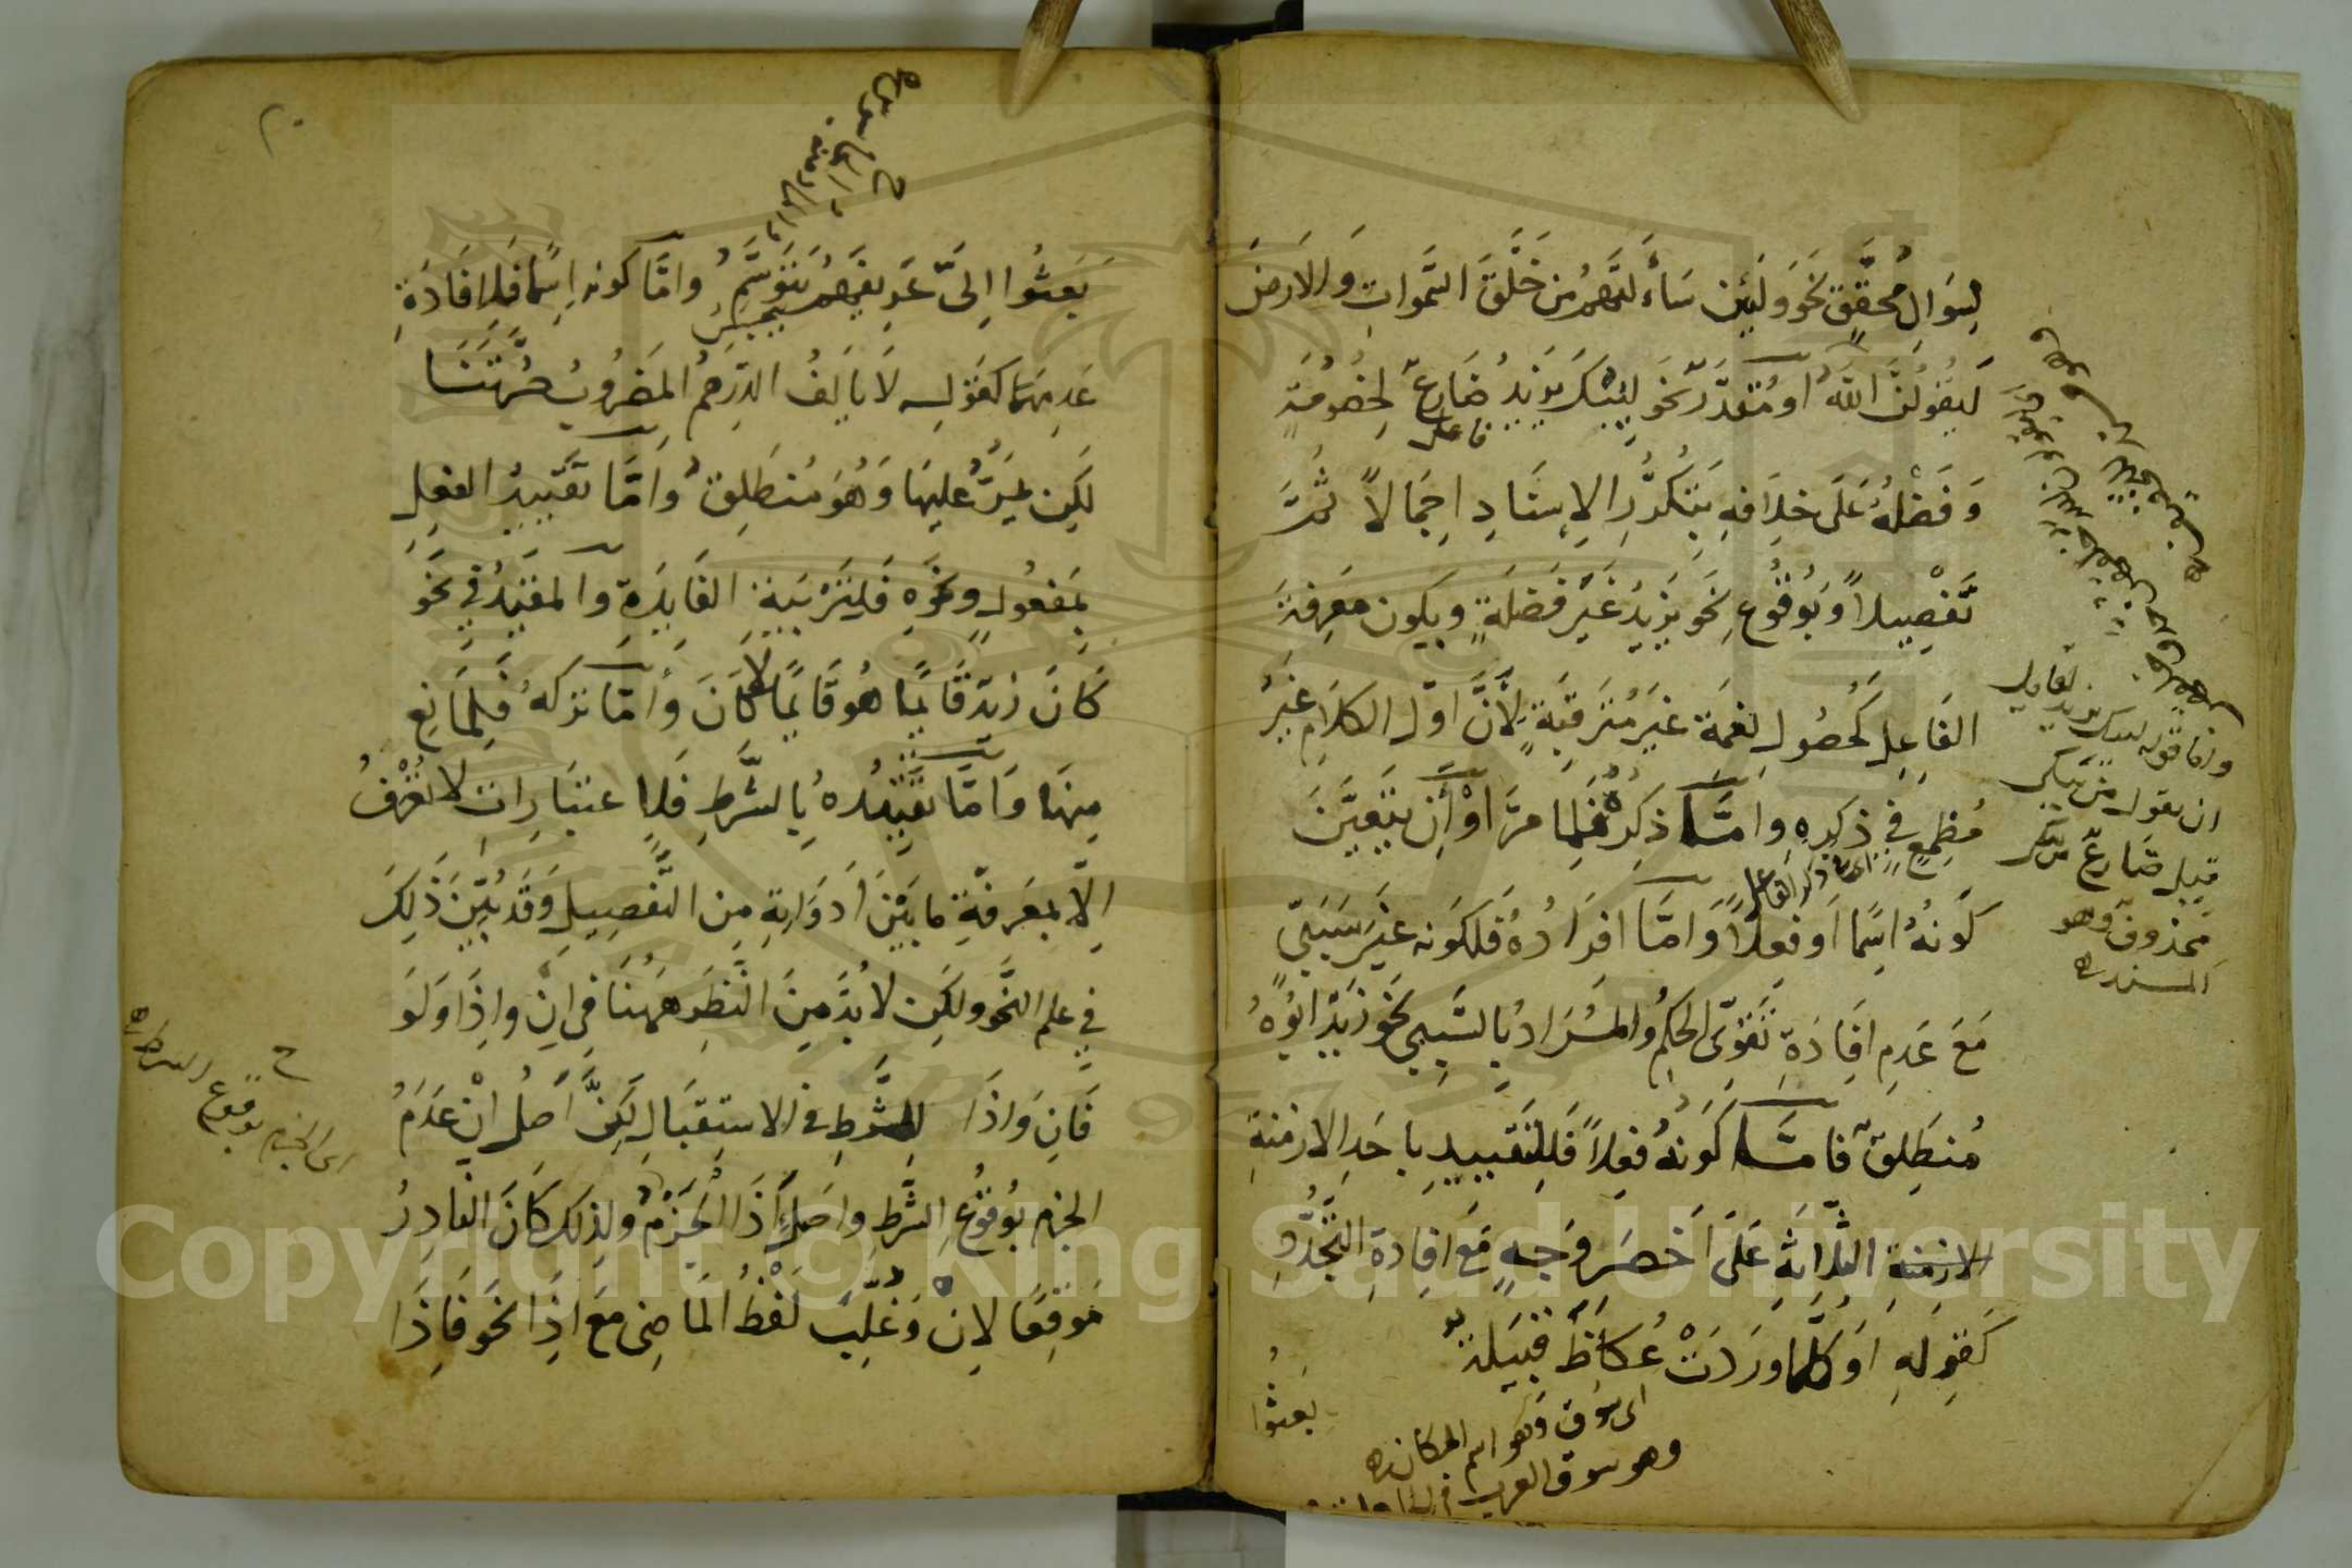 لِسُوَالٍ مُحَقَّقٍ نَحْوُ وَلَئِن سَأَلْتَهُم مَن خَلَقَ السَّمٰوَاتِ وَالاَرْضَ
لَيَقُولُنَّ اللهُ اَو مُقَدَّرٍ نَحْوُ لِيُبْكَ يَزِيدُ ضَارِعٌ لِخُصُومَةٍ
فاعل
وَفَضْلُهُ عَلَى خِلَافِهِ بِتَكَرُّرِ الاِسْنَادِ اِجْمَالاً ثُمَّ
تَفْصِيلاً وَبِوُقُوعِ نَحْوِ يَزِيدُ غَيْرَ فَضْلَةٍ وبكون مَعْرِفَة
الفَاعِلِ كَحُصُولِ نِعْمَة غَيرِ مُتَرَقَّبَةٍ لِأَنَّ اَوَّلَ الكَلَامِ غَيْرُ
مُطْمِعٍ فِي ذِكْرِهِ وامَّا ذِكْرُهُ فَلِمَا مَرَّ اَوْ أَن يَتَعَيَّنَ
اى ذكر الفاعل
كَونُهُ اسْمًا اَو فِعْلاً وَامَّا اِفْرَادُهُ فَلِكَونِهِ غَيْرَ سَبَبِيٍّ
مَعَ عَدَمِ اِفَادَةِ تَقَوِّى الحُكْمِ وَالمُرَادُ بِالسَّبَبِي نَحْوُ زَيْدٌ اَبُوهُ
مُنْطَلِقٌ فَامَّا كَونُهُ فِعْلاً فَلِلتَّقْيِيدِ بِاَحَدِ الازمِنَةِ
الازمنة الثَّلَاثَةِ عَلَى اَخْصَرِ وَجْهٍ مَعَ اِفَادَةِ التَّجَدُّدِ
كَقَولِهِ اَوَ كُلَّمَا وَرَدَتْ عُكَاظَ قَبِيلَةٌ
اى سوق وهو اسم المكان
وهو سوق العرب
بَعَثُوا
واما قوله ليبك يزيد
ان يقول من يبكى
قيل ضارعٌ
محذوف وهو
المسند
٢٠
بَعَثُوا اِلَىَّ عَرِيفَهُم يَتَوَسَّمُ وامَّا كونه اِسْمًا فَلِاِفَادَةِ
عَدَمِهِمَا كَقَولِهِ لَا يَالَفُ الدِّرْهَمُ المَضْرُوبُ صُرَّتَنَا
لَكِن يَمُرُّ عَلَيهَا وَهُوَ مُنطَلِقٌ وَاَمَّا تَقْيِيدُ الفِعْلِ
بِمَفْعُولٍ ونَحْوِهِ فَلِتَرْبِيَةِ الفَايِدَةِ وَالمُقَيَّدُ فِي نَحْوِ
كَانَ زَيْدٌ قَايِمًا هُوَ قَايِمًا لَا كَانَ وَاَمَّا تَركُهُ فَلِمَانِعٍ
مِنهَا وَاَمَّا تَقْيِيدُهُ بِالشَّرطِ فَلِاعتِبَارَاتٍ لا تُعْرَفُ
اِلَّا بِمَعْرِفَةِ مَا بَيْنَ اَدَوَاتِهِ مِنَ التَّفْصِيلِ وَقَد بُيِّنَ ذٰلِكَ
فِي علم النَّحْوِ ولَكِن لا بُدَّ مِنَ النَّظَرِ هَهُنَا فِي اِنْ وَاِذَا وَلَو
فَاِن وَاِذَا لِلشَّرطِ فِي الاستِقبَالِ لَكِنَّ اَصْلَ اِنْ عَدَمُ
الجزم بِوُقُوعِ الشَّرطِ وَاَصْلُ اِذَا الجَزْمُ وَلِذٰلِكَ كَانَ النَّادِرُ
مَوقِعًا لِاِنْ وَغُلِّبَ لَفْظُ المَاضِى مَعَ اِذَا نَحْوُ فَاِذَا
اى الجزم بوقوع الشرط